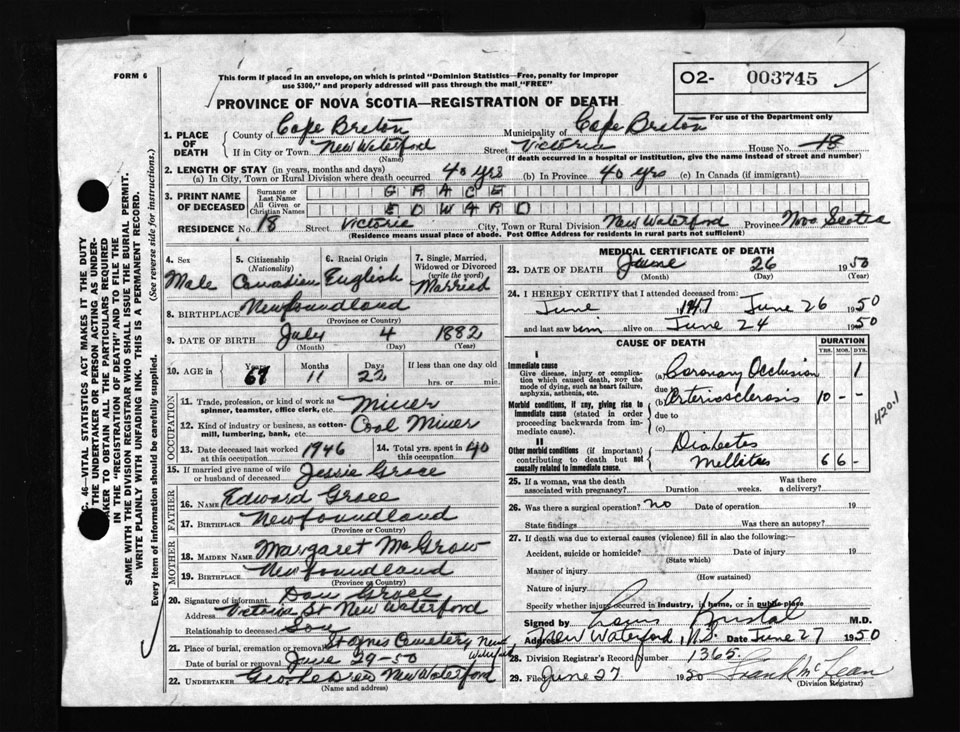 FORM 6
This form if placed in an envelope, on which is printed "Dominion Statistics—Free, penalty for improper
use $300," and properly addressed will pass through the mail "FREE"
O2- 003745
PROVINCE OF NOVA SCOTIA—REGISTRATION OF DEATH
For use of the Department only
1. PLACE OF DEATH
County of Cape Breton Municipality of Cape Breton
If in City or Town New Waterford Street Victoria House No. 18
(Name) (If death occurred in a hospital or institution, give the name instead of street and number)
2. LENGTH OF STAY (in years, months and days)
(a) In City, Town or Rural Division where death occurred 40 yrs (b) In Province 40 yrs (c) In Canada (if immigrant)
3. PRINT NAME OF DECEASED
Surname or Last Name GRACE
All Given or Christian Names EDWARD
RESIDENCE No. 18 Street Victoria City, Town or Rural Division New Waterford Province Nova Scotia
(Residence means usual place of abode. Post Office Address for residents in rural parts not sufficient)
4. Sex Male
5. Citizenship (Nationality) Canadian
6. Racial Origin English
7. Single, Married, Widowed or Divorced (write the word) Married
8. BIRTHPLACE Newfoundland
(Province or Country)
9. DATE OF BIRTH July 4 1882
(Month) (Day) (Year)
10. AGE in Years 67 Months 11 Days 22 If less than one day old
hrs. or min.
OCCUPATION
11. Trade, profession or kind of work as
spinner, teamster, office clerk, etc. Miner
12. Kind of industry or business, as cotton-
mill, lumbering, bank, etc. Coal Miner
13. Date deceased last worked at this occupation 1946
14. Total yrs. spent in this occupation 40
15. If married give name of wife
or husband of deceased Jessie Grace
FATHER
16. NAME Edward Grace
17. BIRTHPLACE Newfoundland
(Province or Country)
MOTHER
18. MAIDEN NAME Margaret McGrow
19. BIRTHPLACE Newfoundland
(Province or Country)
20. Signature of informant Dan Grace
Address Victoria St New Waterford
Relationship to deceased Son
21. Place of burial, cremation or removal St Agnes Cemetery New Waterford
Date of burial or removal June 29-50
22. UNDERTAKER New Waterford
(Name and address)
MEDICAL CERTIFICATE OF DEATH
23. DATE OF DEATH June 26 1950
(Month) (Day) (Year)
24. I HEREBY CERTIFY that I attended deceased from:
June 1947 June 26 1950
and last saw him alive on June 24 1950
CAUSE OF DEATH
DURATION
YRS. MOS. DYS.
I
Immediate cause
Give disease, injury or complica-
tion which caused death, not the
mode of dying, such as heart failure,
asphyxia, asthenia, etc.
(a) Coronary Occlusion - - 1
due to
(b) Arteriosclerosis 10 - -
Morbid conditions, if any, giving rise to
immediate cause (stated in order
proceeding backwards from im-
mediate cause).
due to
(c)
II
Other morbid conditions (if important)
contributing to death but not
causally related to immediate cause.
Diabetes
Mellitus 6 6 -
420.1
25. If a woman, was the death
associated with pregnancy? Duration weeks. Was there a delivery?
26. Was there a surgical operation? No Date of operation 19
State findings Was there an autopsy?
27. If death was due to external causes (violence) fill in also the following:
Accident, suicide or homicide? Date of injury 19
(State which)
Manner of injury
(How sustained)
Nature of injury
Specify whether injury occurred in industry, in home, or in public place
Signed by Kristal M.D.
Address New Waterford, N.S. Date June 27 1950
28. Division Registrar's Record Number 1365
29. Filed June 27 1950 Frank McLean
(Division Registrar)
C. 46—VITAL STATISTICS ACT MAKES IT THE DUTY
THE UNDERTAKER OR PERSON ACTING AS UNDER-
TAKER TO OBTAIN ALL THE PARTICULARS REQUIRED
IN THE "REGISTRATION OF DEATH" AND TO FILE THE
SAME WITH THE DIVISION REGISTRAR WHO SHALL ISSUE THE BURIAL PERMIT.
WRITE PLAINLY WITH UNFADING INK. THIS IS A PERMANENT RECORD.
Every item of information should be carefully supplied. (See reverse side for instructions.)